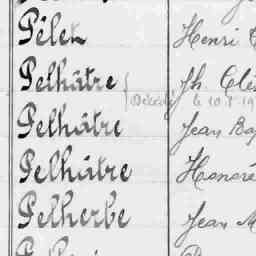 Pélen Henri
Pelhâtre Jh. Clé
Décédé le 10
Pelhâtre Jean Ba
Pelhâtre Honoré
Pelherbe Jean M